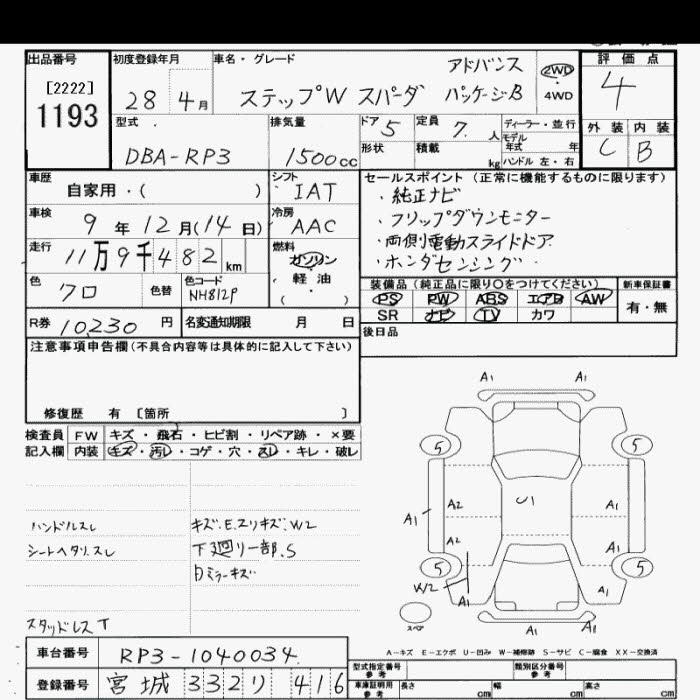 出品番号
[2222]
1193
初度登録年月
28 4月
車名・グレード
ステップW スパーダ
アドバンス
パッケージB
2WD
4WD
評価点
4
外装 内装
C B
型式
DBA-RP3
排気量
1500cc
ドア 5
形状
定員 7. 人
積載 kg
ディーラー・並行
モデル年式 年
ハンドル 左・右
車歴
自家用・( )
シフト
IAT
車検
9年12月(14日)
冷房
AAC
走行
11万9千482km
燃料
ガソリン
・
軽油
( )
色
クロ
色替
色コード
NH812P
R券 10,230 円
名変通知期限 月 日
セールスポイント (正常に機能するものに限ります)
・純正ナビ
・フリップダウンモニター
・両側電動スライドドア
・ホンダセンシング
装備品 (純正品に限り○をつけてください)
PS PW ABS エアB AW
SR ナビ TV カワ
新車保証書
有・無
後日品
注意事項申告欄 (不具合内容等は具体的に記入して下さい)
修復歴 有 〔箇所 〕
検査員記入欄
FW キズ・飛石・ヒビ割・リペア跡・×要
内装 キズ・汚レ・コゲ・穴・スレ・キレ・破レ
ハンドルスレ
シートヘタリ.スレ
スタッドレスT
キズ.E.スリキズ.W2
下廻り一部.S
目ミラーキズ
A1 A1
5 5
A2 U1 A1
A1
A2 A1
5 5
W/2 A1 A1
スペア
A1 A1
A-キズ E-エクボ U-凹み W-補修跡 S-サビ C-腐食 XX-交換済
車台番号 RP3-1040034
登録番号 宮城 332 リ 416
型式指定番号
参考
類別区分番号
参考
車庫証明用
参考
長さ cm 幅 cm 高さ cm